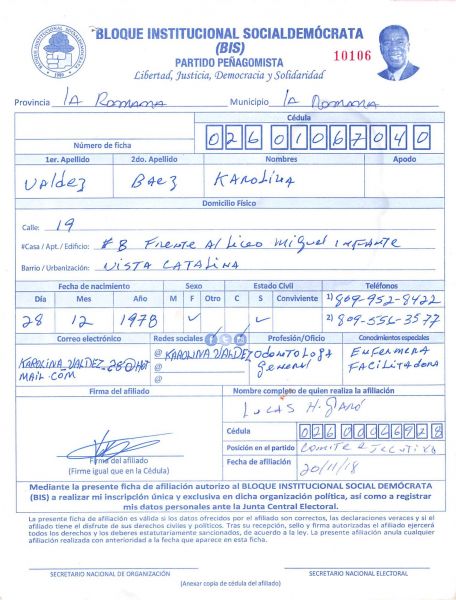 BLOQUE INSTITUCIONAL SOCIALDEMÓCRATA
(BIS)
PARTIDO PEÑAGOMISTA
Libertad, Justicia, Democracia y Solidaridad
10106
Provincia LA Romana Municipio LA Romana
Número de ficha
Cédula
02601067040
1er. Apellido 2do. Apellido Nombres Apodo
Valdez Baez KAROLINA
Domicilio Físico
Calle: 19
#Casa / Apt. / Edificio: #8 Frente Al Liceo Miguel INFANTE
Barrio / Urbanización: VISTA CATALINA
Fecha de nacimiento Sexo Estado Civil Teléfonos
Día Mes Año M F Otro C S Conviviente
1) 809-952-8422
28 12 1978
2) 809-556-3577
Correo electrónico Redes sociales Profesión/Oficio Conocimientos especiales
KAROLINA_VALDEZ_28@HOT
MAIL.COM
@ KAROLINA VALDEZ
@
@
Odontologa
General
ENFERMERA
FACILITADORA
Firma del afiliado
Nombre completo de quien realiza la afiliación
LUCAS H.
Cédula
Posición en el partido Comite Ejecutivo
Fecha de afiliación 20/11/18
Firma del afiliado
(Firme igual que en la Cédula)
Mediante la presente ficha de afiliación autorizo al BLOQUE INSTITUCIONAL SOCIAL DEMÓCRATA
(BIS) a realizar mi inscripción única y exclusiva en dicha organización política, así como a registrar
mis datos personales ante la Junta Central Electoral.
La presente ficha de afiliación es válida si los datos ofrecidos por el afiliado son correctos, las declaraciones veraces y si el
afiliado tiene el disfrute de sus derechos civiles y políticos. Tras su recepción, sello y firma autorizadas el afiliado ejercerá
todos los derechos y los deberes estatutariamente sancionados, de acuerdo a la ley. La presente afiliación anula cualquier
afiliación realizada con anterioridad a la fecha que aparece en esta ficha.
SECRETARIO NACIONAL DE ORGANIZACIÓN SECRETARIO NACIONAL ELECTORAL
(Anexar copia de cédula del afiliado)